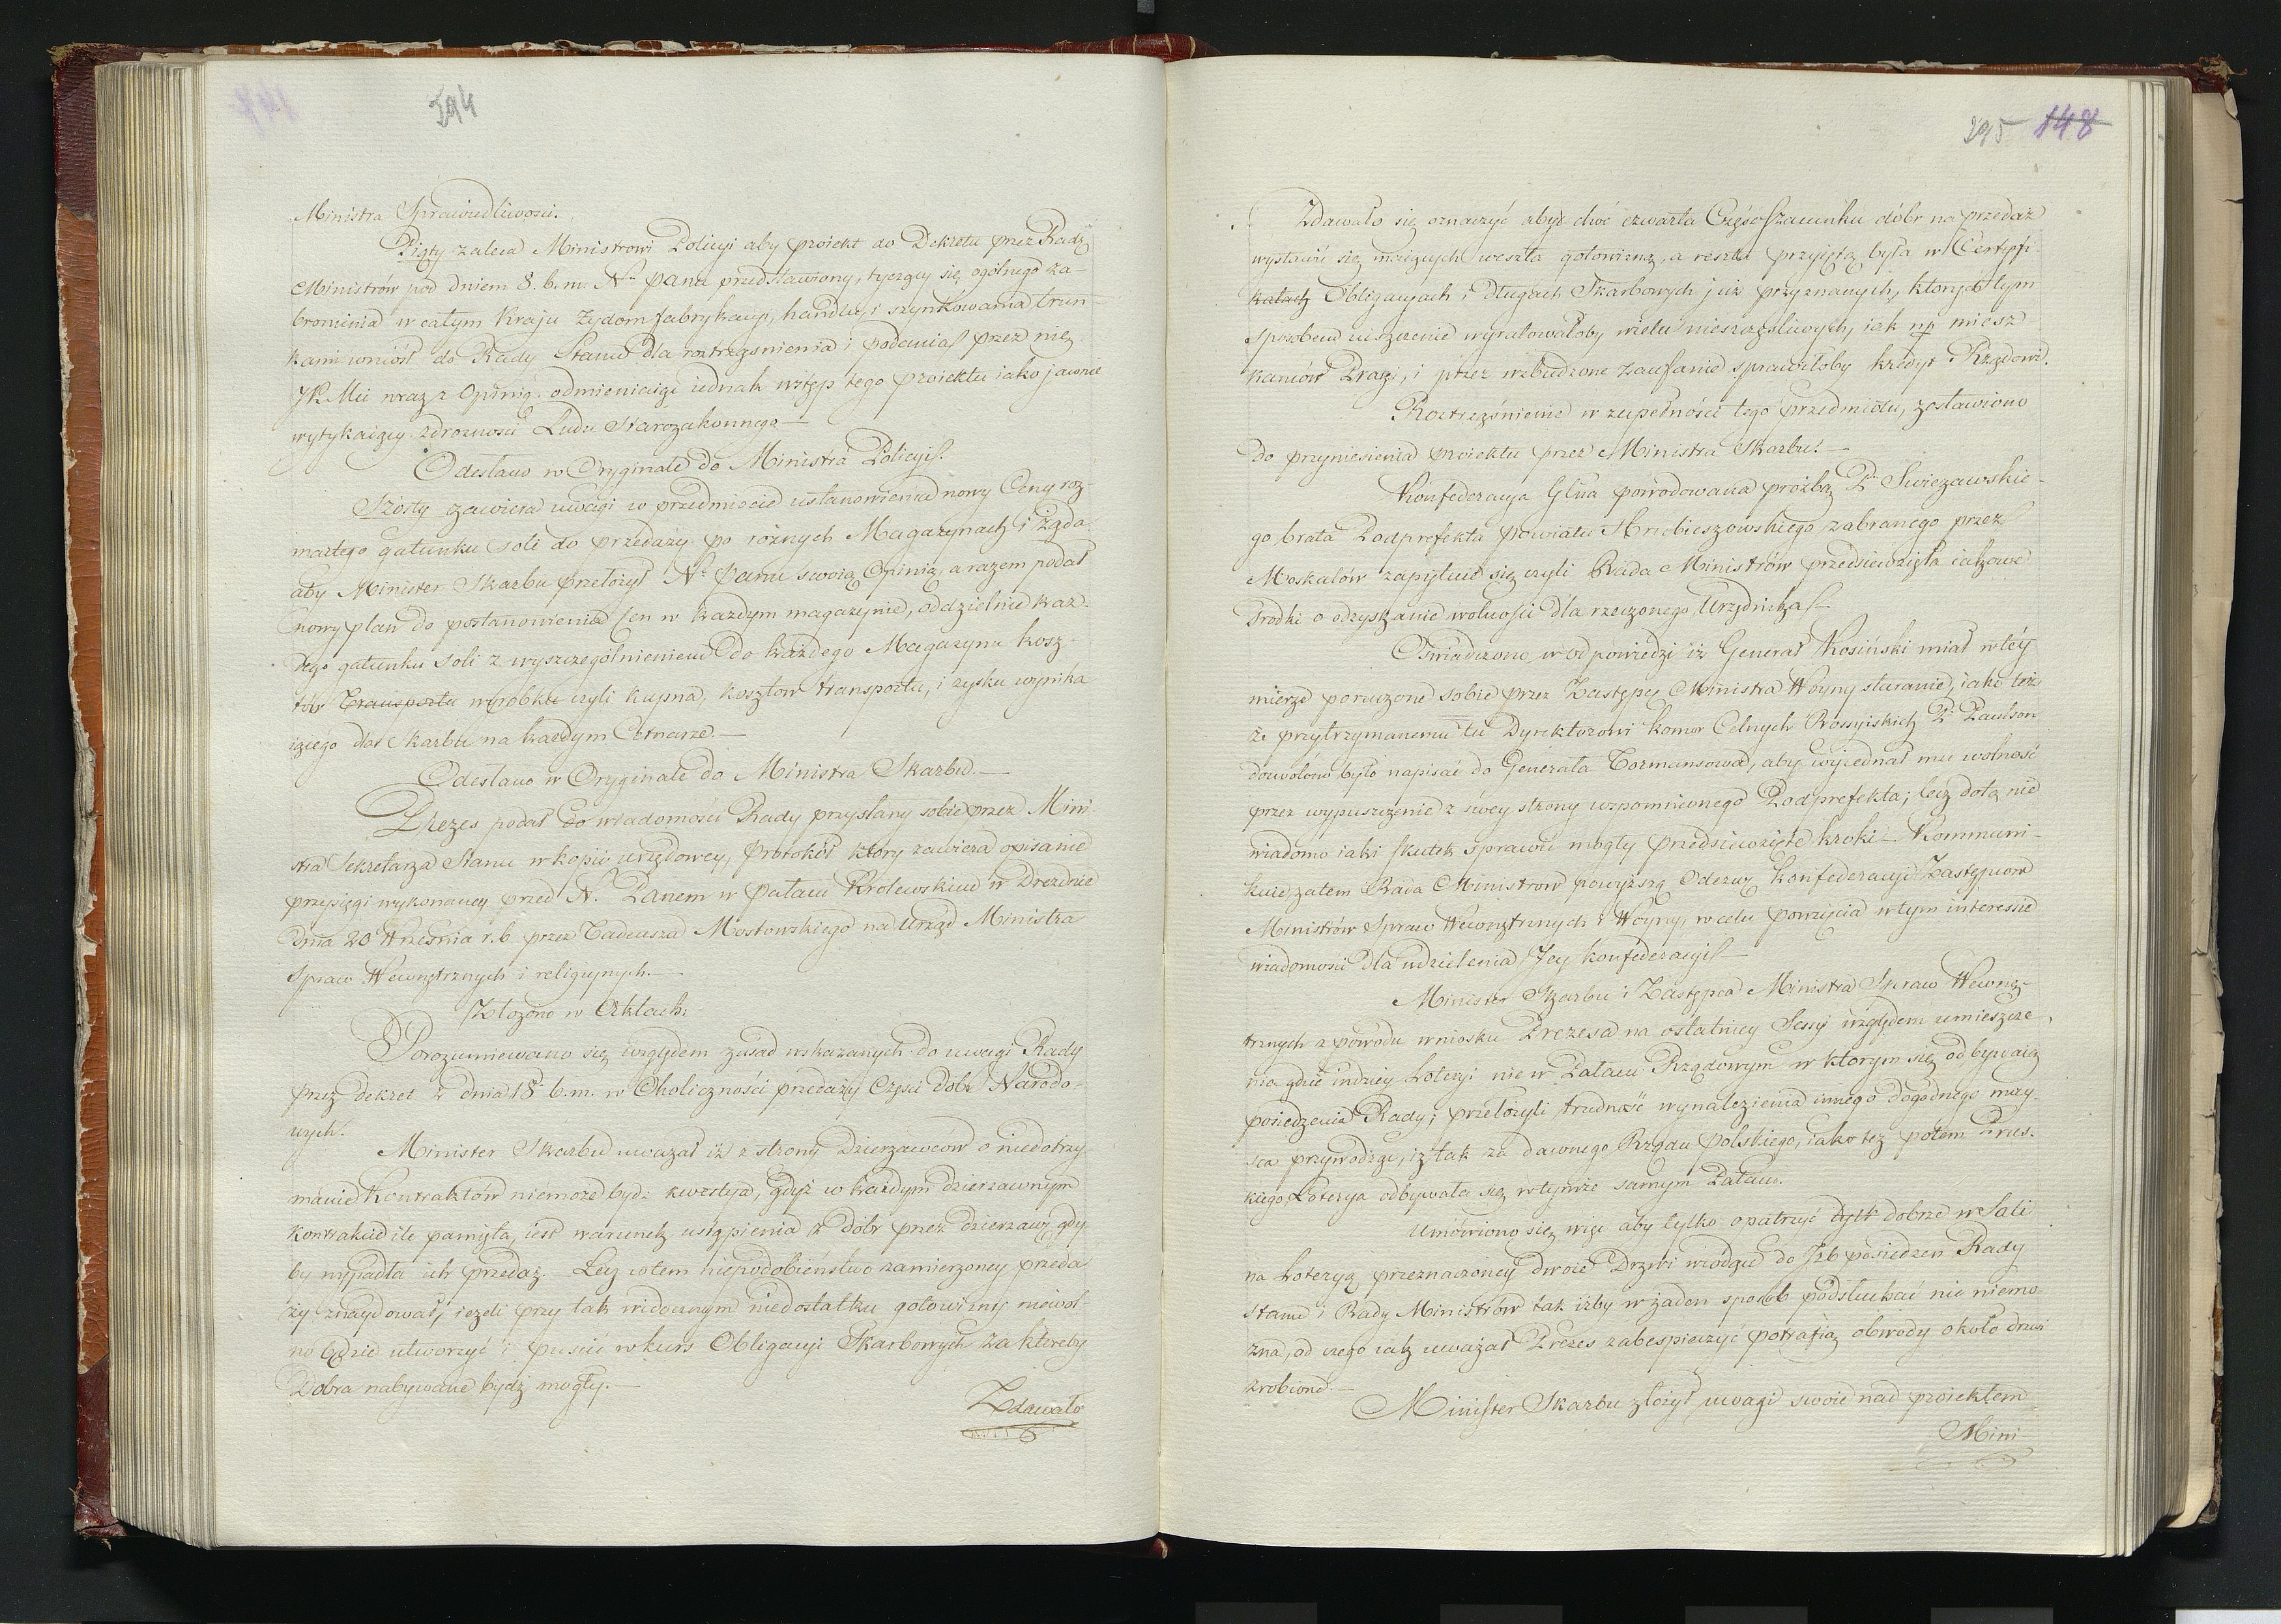 294
Ministra Sprawiedliwości.
Piąty zaleca Ministrowi Policyi aby proiekt do Dekretu przez Radę
Ministrów pod dniem 8. b. m. N. Panu przedstawiony, tyczący się ogólnego za-
bronienia w całym Kraju Żydom fabrykacyi, handlu, i szynkowania trun-
kami wniósł do Rady Stanu dla roztrząśnienia i podania przez nię
JK Mci wraz z Opinią odmieniaiąc iednak wstęp tego proiektu iako jawnie
wytykaiący zdrożności Ludu Starozakonnego —
Odesłano w Oryginale do Ministra Policyi.
Szósty zawiera uwagi w przedmiocie ustanowienia nowy Ceny roz-
maitego gatunku soli do przedaży po różnych Magazynach i żąda
aby Minister Skarbu przełożył N. Panu swoią Opinią, a razem podał
nowy plan do postanowienia Cen w każdym magazynie, oddzielnie każ-
dego gatunku soli z wyszczególnieniem do każdego Magazynu kosz-
tów Transportu wyrobku czyli kupna, kosztów transportu, i zysku wynika
iącego dla Skarbu na każdym Cetnarze. —
Odesłano w Oryginale do Ministra Skarbu. —
Prezes podał do wiadomości Rady przysłany sobie przez Mini-
stra Sekretarza Stanu w kopii urzędowey, Protokół który zawiera opisanie
przysięgi wykonaney przed N. Panem w Pałacu Krolewskim w Dreznie
dnia 20 Września r. b. przez Tadeusza Mostowskiego na Urząd Ministra
Spraw Wewnętrznych i religiynych. —
Złożono w Aktach.
Porozumiewano się względem zasad wskazanych do uwagi Rady
przez dekret z dnia 18 b. m. w Okoliczności przedaży Części Dóbr Narodo-
wych.
Minister Skarbu uważał iż z strony Dzierżawców o niedotrzy
manie Kontraktów niemoże bydź kwestya, gdyż w każdym dzierżawnym
kontrakcie ile pamięta, iest warunek ustąpienia z dóbr przez dzierżawcę gdy
by wypadła ich przedaż. Lecz wtem niepodobieństwo zamierzoney przeda
ży znaydował, ieżeli przy tak widocznym niedostatku gotowizny niewol-
no będzie utworzyć i puścić w kurs Obligacyi Skarbowych za któreby
Dobra nabywane bydź mogły. —
Zdawało
295 148
Zdawało się oznaczyć abyć choć czwarta Część Szacunku dóbr na przedaż
wystawić się maiących weszła gotowizną, a reszta przyiętą była w Certyfi-
katach Obligacyach i długach Skarbowych już przyznanych, których tym
Sposobem uiszczenie wyratowałoby wielu nieszczęśliwych, iak np miesz
kańców Pragi, i przez wzbudzone zaufanie sprawiłoby kredyt Rządowi.
Roztrząśnienie w zupełności tego przedmiotu, zostawiono
do przyniesienia proiektu przez Ministra Skarbu. —
Konfederacya Glna powodowana prośbą P. Swieżawskie-
go brata Podprefekta Powiatu Hrubieszowskiego zabranego przez
Moskalów zapytuie się czyli Rada Ministrów przedsiewzięła iakowe
Srodki o odzyskanie wolności dla rzeczonego Urzędnika —
Oświadczono w odpowiedzi iż Generał Kosiński miał w téy
mierze poruczone sobie przez Zastępcę Ministra Woyny staranie, iako też
że przytrzymanemu tu Dyrektorowi komor Celnych Rossyiskich P. Paulson
dozwolono było napisać do Generała Tormansowa, aby wyiednał mu wolność
przez wypuszczenie z swey strony wspomnionego Podprefekta; lecz dotą nie
wiadomo iaki skutek sprawić mogły przedsiewzięte kroki — Kommuni-
kuie zatem Rada Ministrow powyższą Odezwę Konfederacyi Zastępcom
Ministrów Spraw Wewnętrznych i Woyny, w celu powzięcia w tym interessie
wiadomości dla udzielenia Jey Konfederacyi —
Minister Skarbu i Zastępca Ministra Spraw Wewnę-
trznych z powodu wniosku Prezesa na ostatniey Sessyi względem umieszcze
nia gdzie indziey Loteryi nie w Pałacu Rządowym w którym się odbywaią
posiedzenia Rady; przełożyli trudność wynalezienia innego dogodnego miey-
sca przywodząc, iż tak za dawnego Rządu Polskiego, iako też potem Prus-
kiego Loterya odbywała się w tymże samym Pałacu.
Umówiono się więc aby tylko opatrzyć tylk dobrze w Sali
na Loteryą przeznaczoney dwoie Drzwi wiodące do Izb posiedzeń Rady
Stanu i Rady Ministrów tak iżby w żaden sposób podsłuchać nie niemo
żna, od czego iak uważał Prezes zabespieczyć potrafią obwody około drzwi
zrobione. —
Minister Skarbu złożył uwagi swoie nad proiektem
Mini